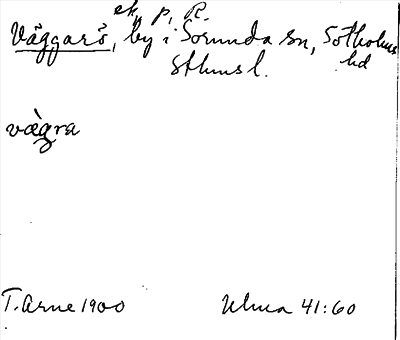 ek, p, R.
Väggarö, by i Sorunda sn, Sotholms
hd
Sthms l.
vàgra
T. Arne 1900
Ulma 41:60